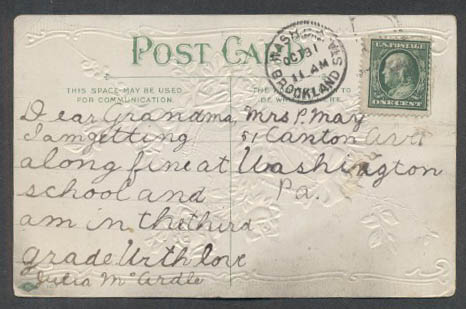 POST CARD
WASH
OCT 31
11 AM
BROOKLAND STA
U.S. POSTAGE
ONE CENT
THIS SPACE MAY BE USED
FOR COMMUNICATION.
THE
TO
BE
Dear Grandma,
I am getting
along fine at
school and
am in the third
grade With love
Julia McArdle
Mrs P. May
51 Canton Ave
Washington
Pa.